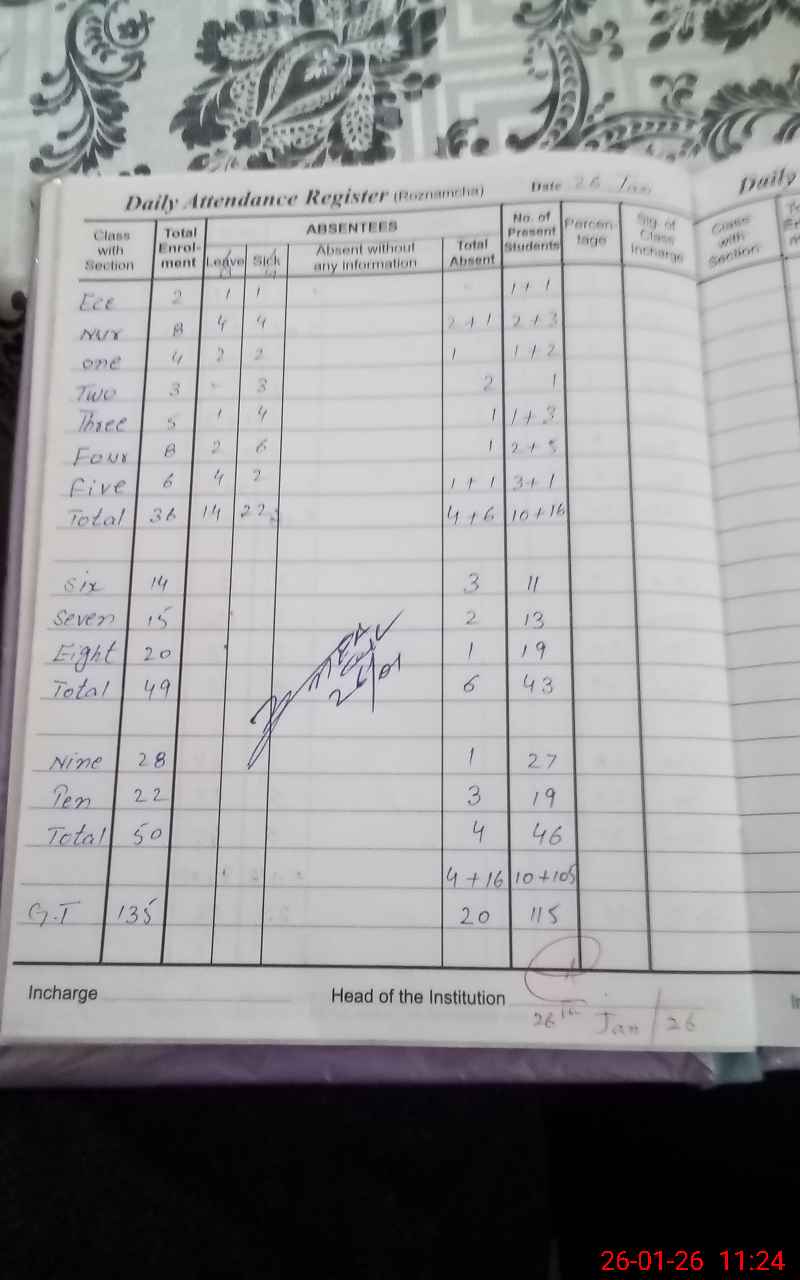 Daily Attendance Register (Roznamcha) Date 26 Jan
Class with Section Total Enrol-ment ABSENTEES Leave Sick Absent without any information Total Absent No. of Present Students Percen-tage Sig. of Class Incharge
Ece 2 1 1 1+1
Nur 8 4 4 2+1 2+3
one 4 2 2 1 1+2
Two 3 - 3 2 1
Three 5 1 4 1 1+3
Four 8 2 6 1 2+5
Five 6 4 2 1+1 3+1
Total 36 14 22 4+6 10+16
Six 14 3 11
Seven 15 2 13
Eight 20 1 19
Total 49 6 43
26/01
Nine 28 1 27
Ten 22 3 19
Total 50 4 46
4+16 10+105
G.T 135 20 115
Incharge Head of the Institution
26th Jan/26
Daily
Class with Section
26-01-26 11:24